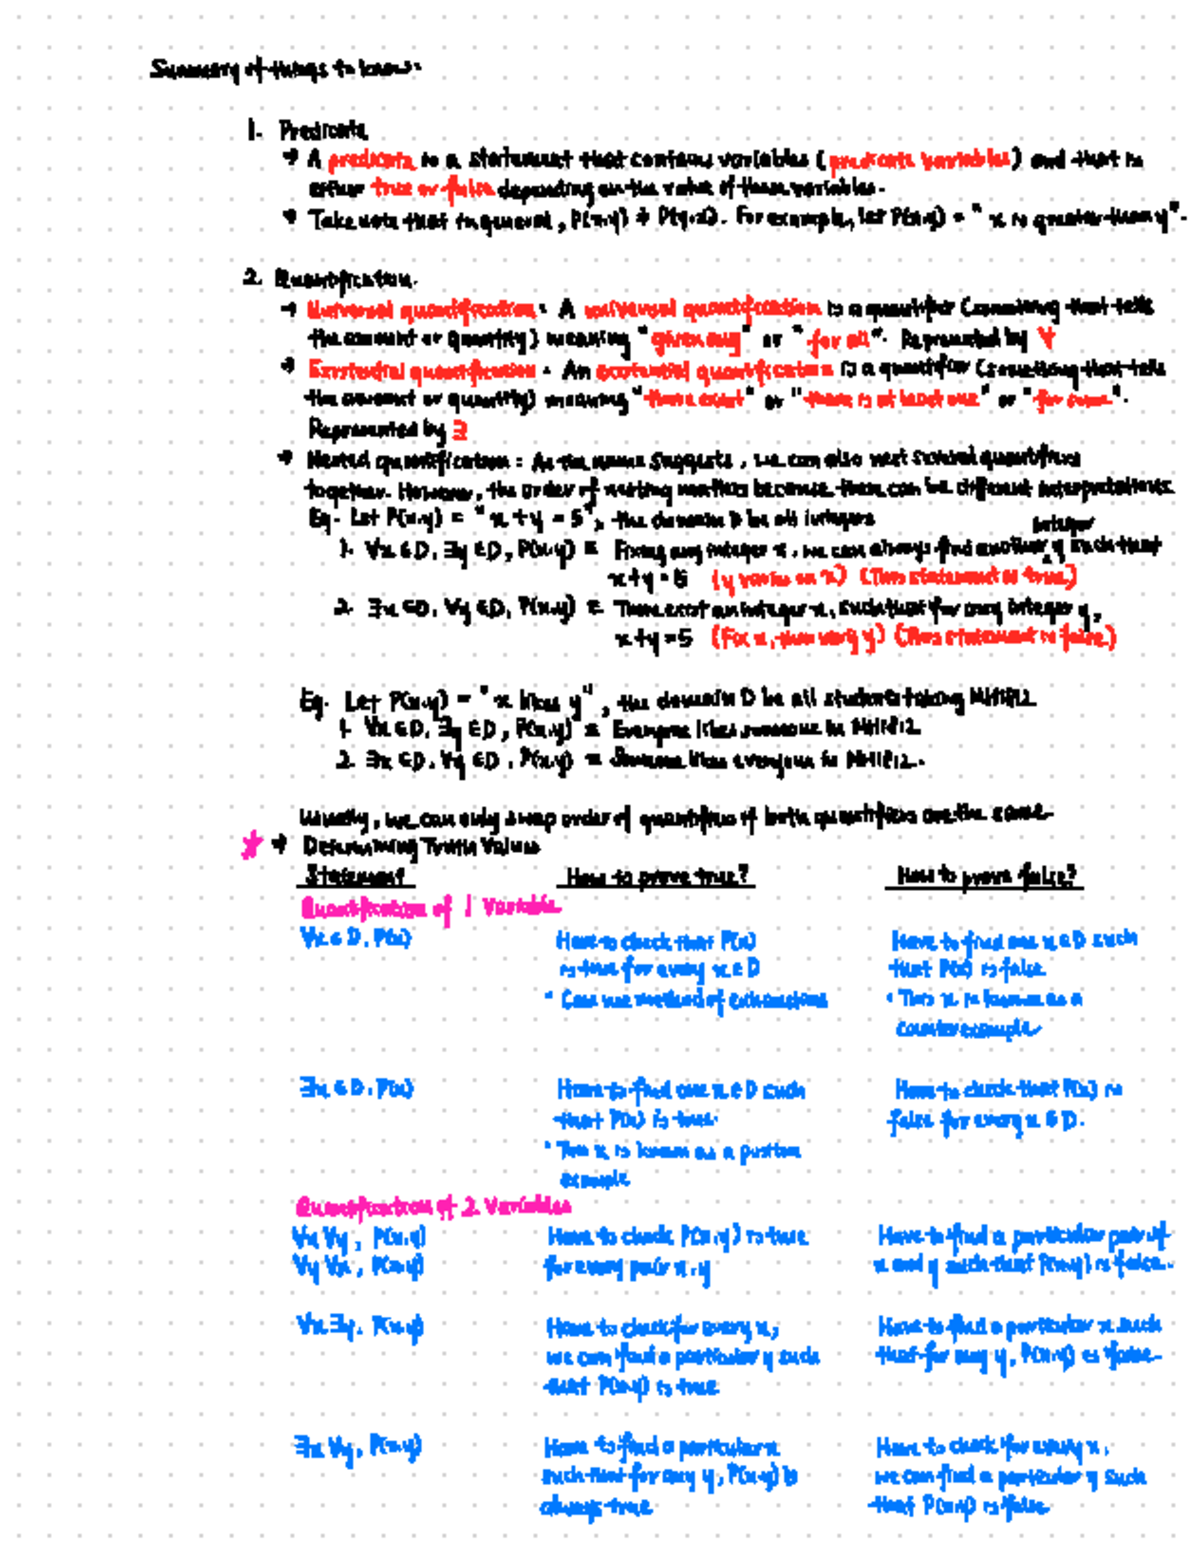 Summary of things to know:
1. Predicate
→ A predicate is a statement that contains variables (predicate variables) and that is
either true or false depending on the value of these variables.
→ Take note that in general, P(x,y) ≠ P(y,x). For example, let P(x,y) = "x is greater than y".
2. Quantification.
→ Universal quantification: A universal quantification is a quantifier (something that tells
the amount or quantity) meaning "given any" or "for all". Represented by ∀
→ Existential quantification: An existential quantification is a quantifier (something that tells
the amount or quantity) meaning "there exist" or "there is at least one" or "for some".
Represented by ∃
→ Nested quantification: As the name suggests, we can also nest several quantifiers
together. However, the order of nesting matters because there can be different interpretations.
Eg. Let P(x,y) = "x+y=5", the domain D be all integers
1. ∀x∈D, ∃y∈D, P(x,y) ≡ Fixing any integer x, we can always find another integer y such that
x+y=5 (y varies on x) (This statement is true.)
2. ∃x∈D, ∀y∈D, P(x,y) ≡ There exist an integer x, such that for any integer y,
x+y=5 (Fix x, then vary y) (This statement is false.)
Eg. Let P(x,y) = "x likes y", the domain D be all students taking MH1812
1. ∀x∈D, ∃y∈D, P(x,y) ≡ Everyone likes someone in MH1812
2. ∃x∈D, ∀y∈D, P(x,y) ≡ Someone likes everyone in MH1812.
Usually, we can only swap order of quantifiers if both quantifiers are the same
→ Determining Truth Values
Statement How to prove true? How to prove false?
Quantification of 1 Variable
∀x∈D, P(x) Have to check that P(x) Have to find one x∈D such
is true for every x∈D that P(x) is false
• Can use method of exhaustions • This x is known as a
counterexample
∃x∈D, P(x) Have to find one x∈D such Have to check that P(x) is
that P(x) is true. false for every x∈D.
• This x is known as a positive
example
Quantification of 2 Variables
∀x∀y, P(x,y) Have to check P(x,y) is true Have to find a particular pair of
∀y∀x, P(x,y) for every pair x,y x and y such that P(x,y) is false.
∀x∃y, P(x,y) Have to check for every x, Have to find a particular x such
we can find a particular y such that for any y, P(x,y) is false.
that P(x,y) is true
∃x∀y, P(x,y) Have to find a particular x Have to check for every x,
such that for any y, P(x,y) is we can find a particular y such
always true that P(x,y) is false